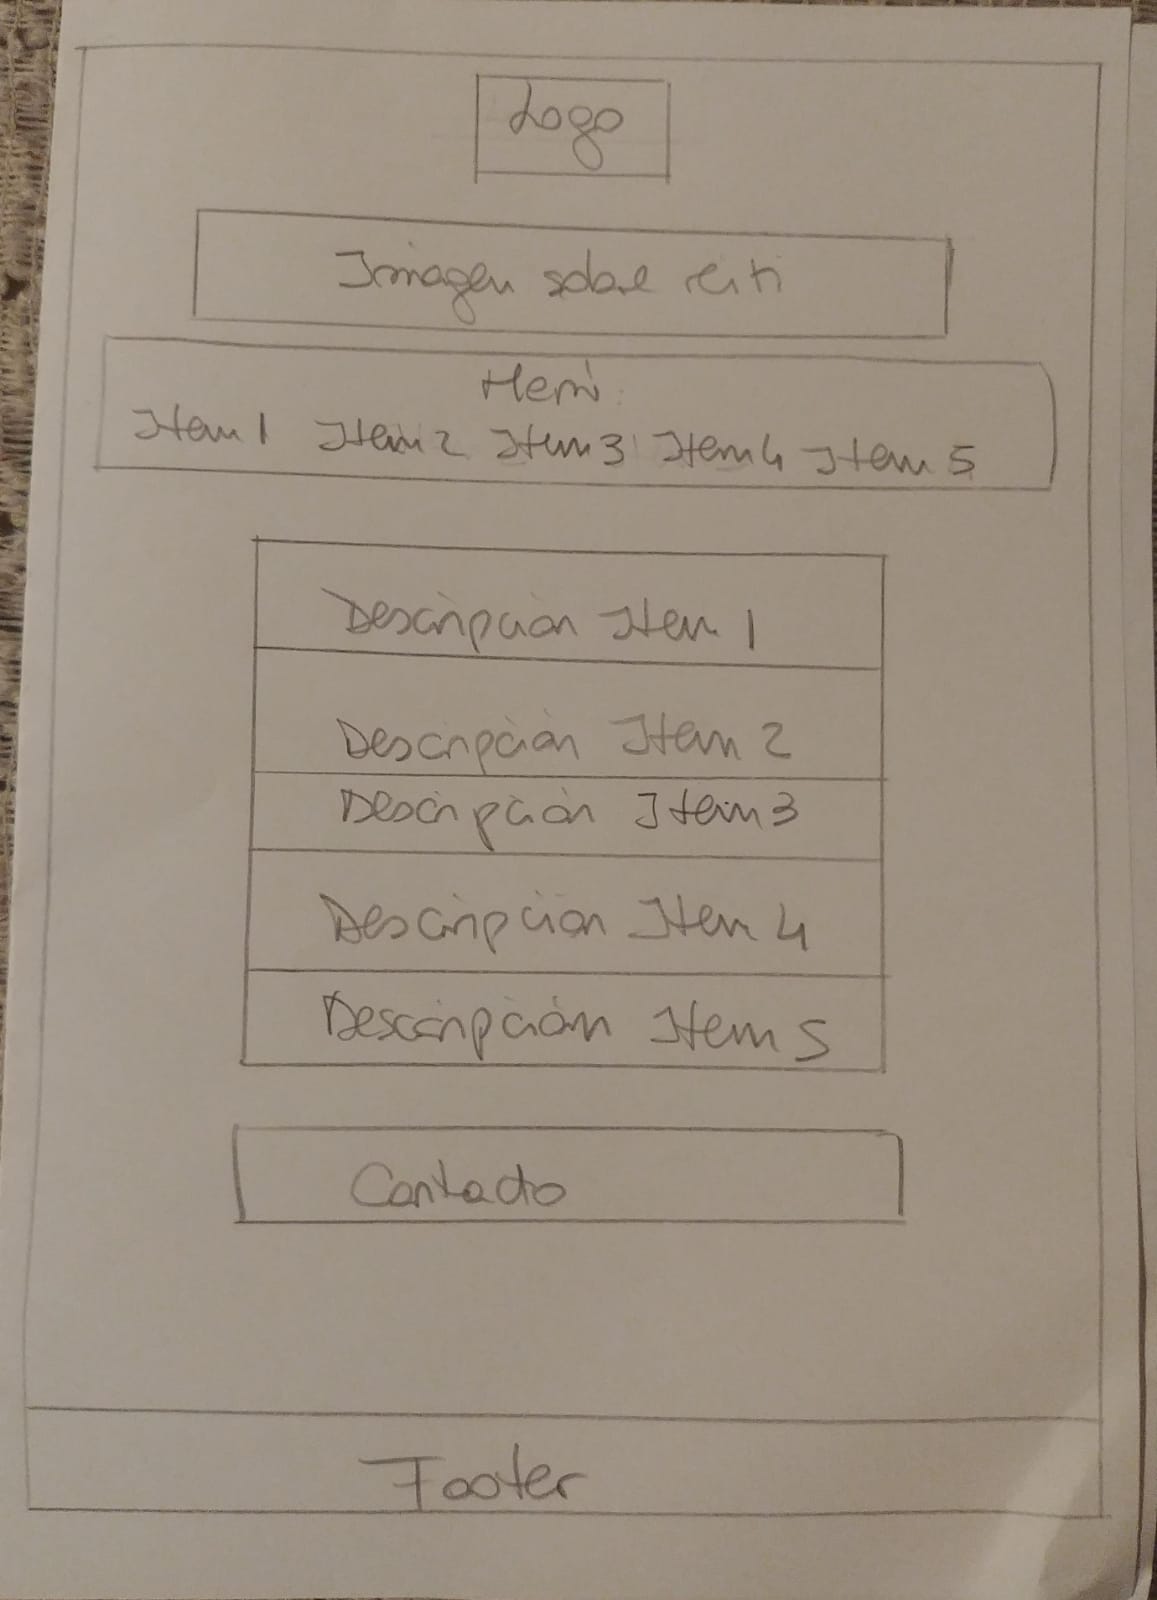 Logo
Imagen sobre
Menú
Item 1 Item 2 Item 3 Item 4 Item 5
Descripción Item 1
Descripción Item 2
Descripción Item 3
Descripción Item 4
Descripción Item 5
Contacto
Footer